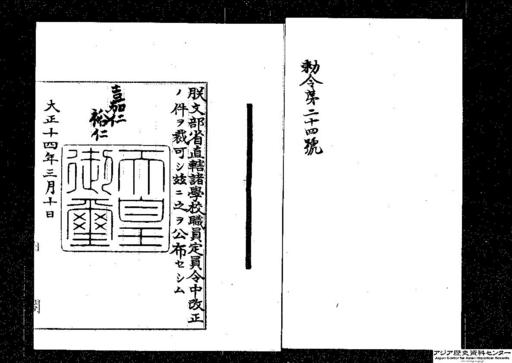 勅令第二十四號
朕文部省直轄諸學校職員定員令中改正
ノ件ヲ裁可シ茲ニ之ヲ公布セシム
嘉仁
裕仁
天皇御璽
大正十四年三月十日
アジア歴史資料センター
Japan Center for Asian Historical Records